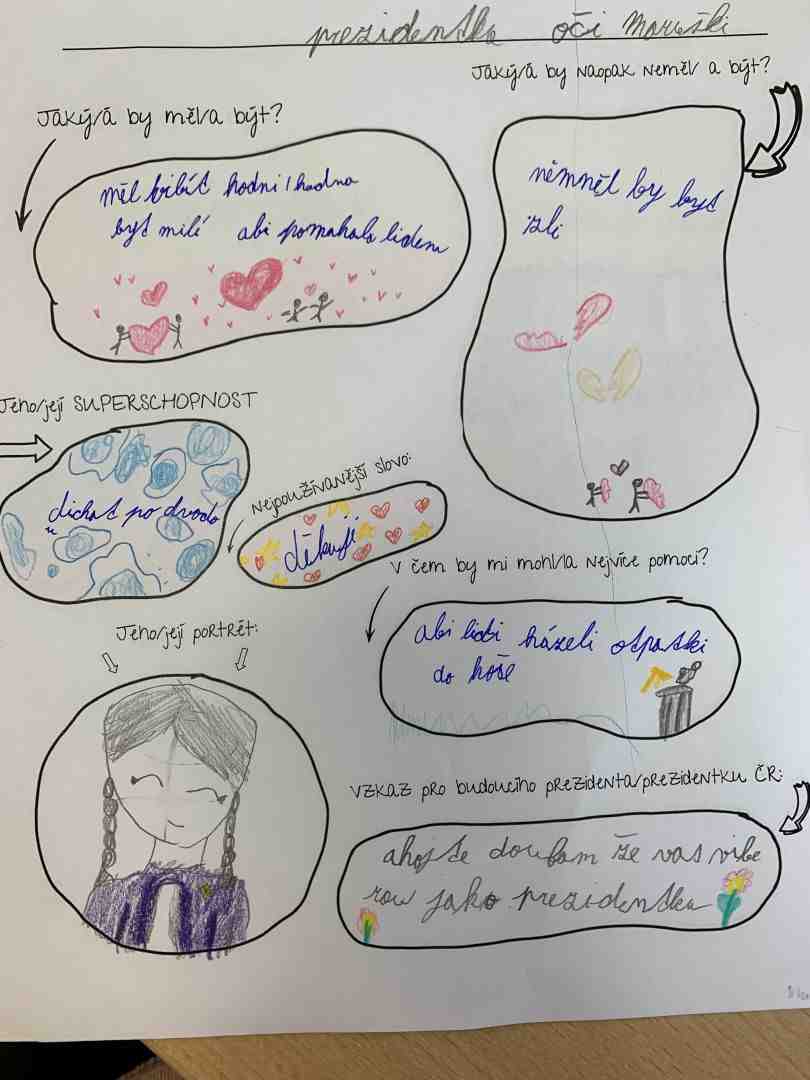 prezidentka očí Marušky
Jaký/á by měl/a být?
měl bi bíť hodni / hodna
byt milí abi pomahala lidem
Jaký/á by naopak neměl a být?
němněl by byt
zli
Jeho/její SUPERSCHOPNOST
dichat po dvodo
u
Nejpoužívanější slovo:
děkuji
V čem by mi mohl/la nejvíce pomoci?
abi lidi házeli otpatki
do koše
Jeho/její portrét:
Vzkaz pro budoucího prezidenta/prezidentku ČR:
ahojte doufam že vas vibe
rou jako prezidentku